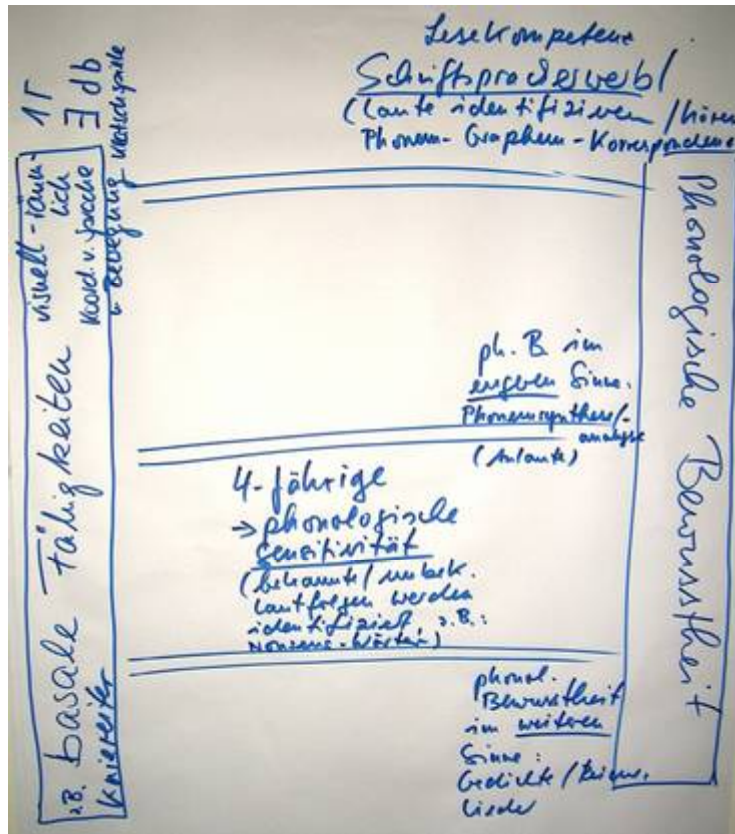 Lesekompetenz
Schriftspracherwerb/
(Laute identifizieren/hören
Phonem-Graphem-Korrespondenz
1 r
∃ db
visuell-räum-
lich
Koord. v. Sprache
u. Bewegung
Klatschspiele
basale Fähigkeiten
z.B. Kniereiter
Phonologische Bewusstheit
ph. B. im
engeren Sinne.
Phonemsynthese/-
analyse
(Anlaute)
4-jährige
→ phonologische
Sensitivität
(bekannte/unbek.
Lautfolgen werden
identifiziert, z.B.:
Nonsens-Wörter)
phonol.
Bewusstheit
im weiteren
Sinne:
Gedichte/Reime,
Lieder